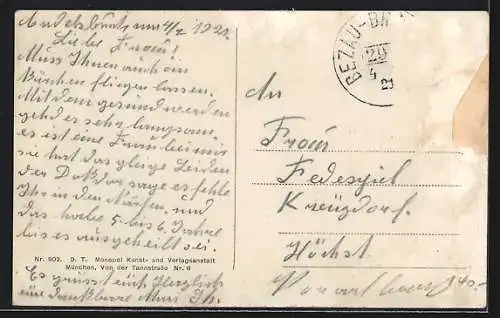 Andelsbuch am 4/7 1921.
Liebe Frau!
Muss Ihnen auch ein
Kärtchen fliegen lassen.
Mit dem gesund werden
gehd es sehr langsam.
es ist eine Frau bei mir
sie hat das gleige Leiden
der Dokdor sage es fehle
Ihr in den Närfen. und
das habe 5 bis 6 Jahre
bis es ausgeheilt sei.
Nr. 902. D. T. Monopol Kunst- und Verlagsanstalt
München, Von der Tannstraße Nr. 6
Es grüsst euch Herzlich
eine dankbare
BEZAU-
4
21
An
Frau
Federspiel
Höchst
Vorarlberg